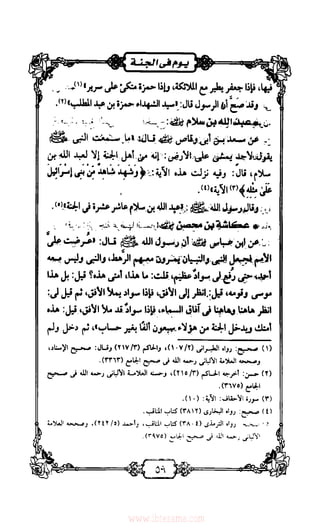 يوم فى الجنة
فيها، فإذا جعفر يطير مع الملائكة، وإذا حمزة متكئ على سرير»(١).
وقد صح أن الرسول قال: «سيد الشهداء حمزة بن عبد المطلب»(٢).
عبد الله بن سلام
عن سعد بن أبى وقاص قال: ما سمعت النبى ﷺ
يقول لأحد يمشى على الأرض: إنه من أهل الجنة إلا لعبد الله بن
سلام، قال: وفيه نزلت هذه الآية: ﴿وَشَهِدَ شَاهِدٌ مِّنْ بَنِي إِسْرَائِيلَ
عَلَىٰ مِثْلِهِ﴾(٣) الآية(٤).
وقال رسول الله: «عبد الله بن سلام عاشر عشرة فى الجنة»(٥).
عكاشة بن محصن
عن ابن عباس أن رسول الله ﷺ قال: «عرضت علىَّ
الأمم فجعل النبى والنبيان يمرون معهم الرهط، والنبى وليس معه
أحد، حتى رفع لى سواد عظيم، قلت: ما هذا؟ أمتى هذه؟ قيل: بل هذا
موسى وقومه، قيل: انظر إلى الأفق، فإذا سواد يملأ الأفق، ثم قيل لى:
انظر هاهنا وهاهنا فى آفاق السماء، فإذا سواد قد ملأ الأفق، قيل: هذه
أمتك ويدخل الجنة من هؤلاء سبعون ألفًا بغير حساب»، ثم دخل ولم
(١) صحيح: رواه الطبرانى (١٠٧/٢)، والحاكم (٢١٧/٣) وقال: صحيح الإسناد،
وصححه العلامة الألبانى رحمه الله فى صحيح الجامع (٣٣١٣).
(٢) حسن: أخرجه الحاكم (٢١٥/٣)، وحسنه العلامة الألبانى رحمه الله فى صحيح
الجامع (٣١٧٥).
(٣) سورة الأحقاف: الآية: (١٠).
(٤) صحيح: رواه البخارى (٣٨١٢) كتاب المناقب.
رواه الترمذى (٣٨٠٤) كتاب المناقب، وأحمد (٢٤٢/٥)، وصححه العلامة
الألبانى رحمه الله فى صحيح الجامع (٣٩٧٥).
٥٩
www.ibtesama.com